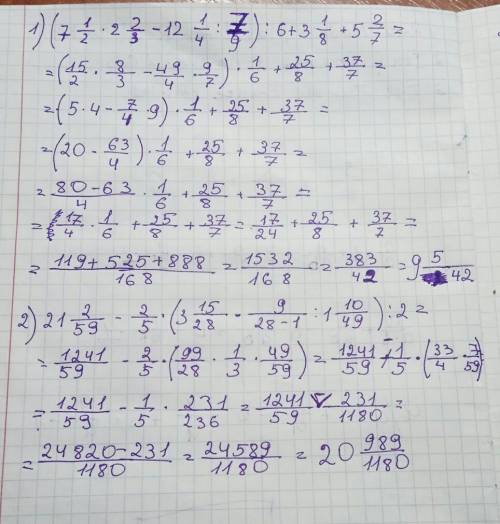 1) (7 1/2 · 2 2/3 - 12 1/4 : 7/9) : 6 + 3 1/8 + 5 2/7 =
= (15/2 · 8/3 - 49/4 · 9/7) · 1/6 + 25/8 + 37/7 =
= (5 · 4 - 7/4 · 9) · 1/6 + 25/8 + 37/7 =
= (20 - 63/4) · 1/6 + 25/8 + 37/7 =
= 80-63/4 · 1/6 + 25/8 + 37/7 =
= 17/4 · 1/6 + 25/8 + 37/7 = 17/24 + 25/8 + 37/7 =
= 119+525+888/168 = 1532/168 = 383/42 = 9 5/42
2) 21 2/59 - 2/5 · (3 15/28 · 9/28-1 : 1 10/49) : 2 =
= 1241/59 - 2/5 · (99/28 · 1/3 · 49/59) = 1241/59 - 1/5 · (33/4 · 7/59)
= 1241/59 - 1/5 · 231/236 = 1241/59 - 231/1180 =
= 24820-231/1180 = 24589/1180 = 20 989/1180